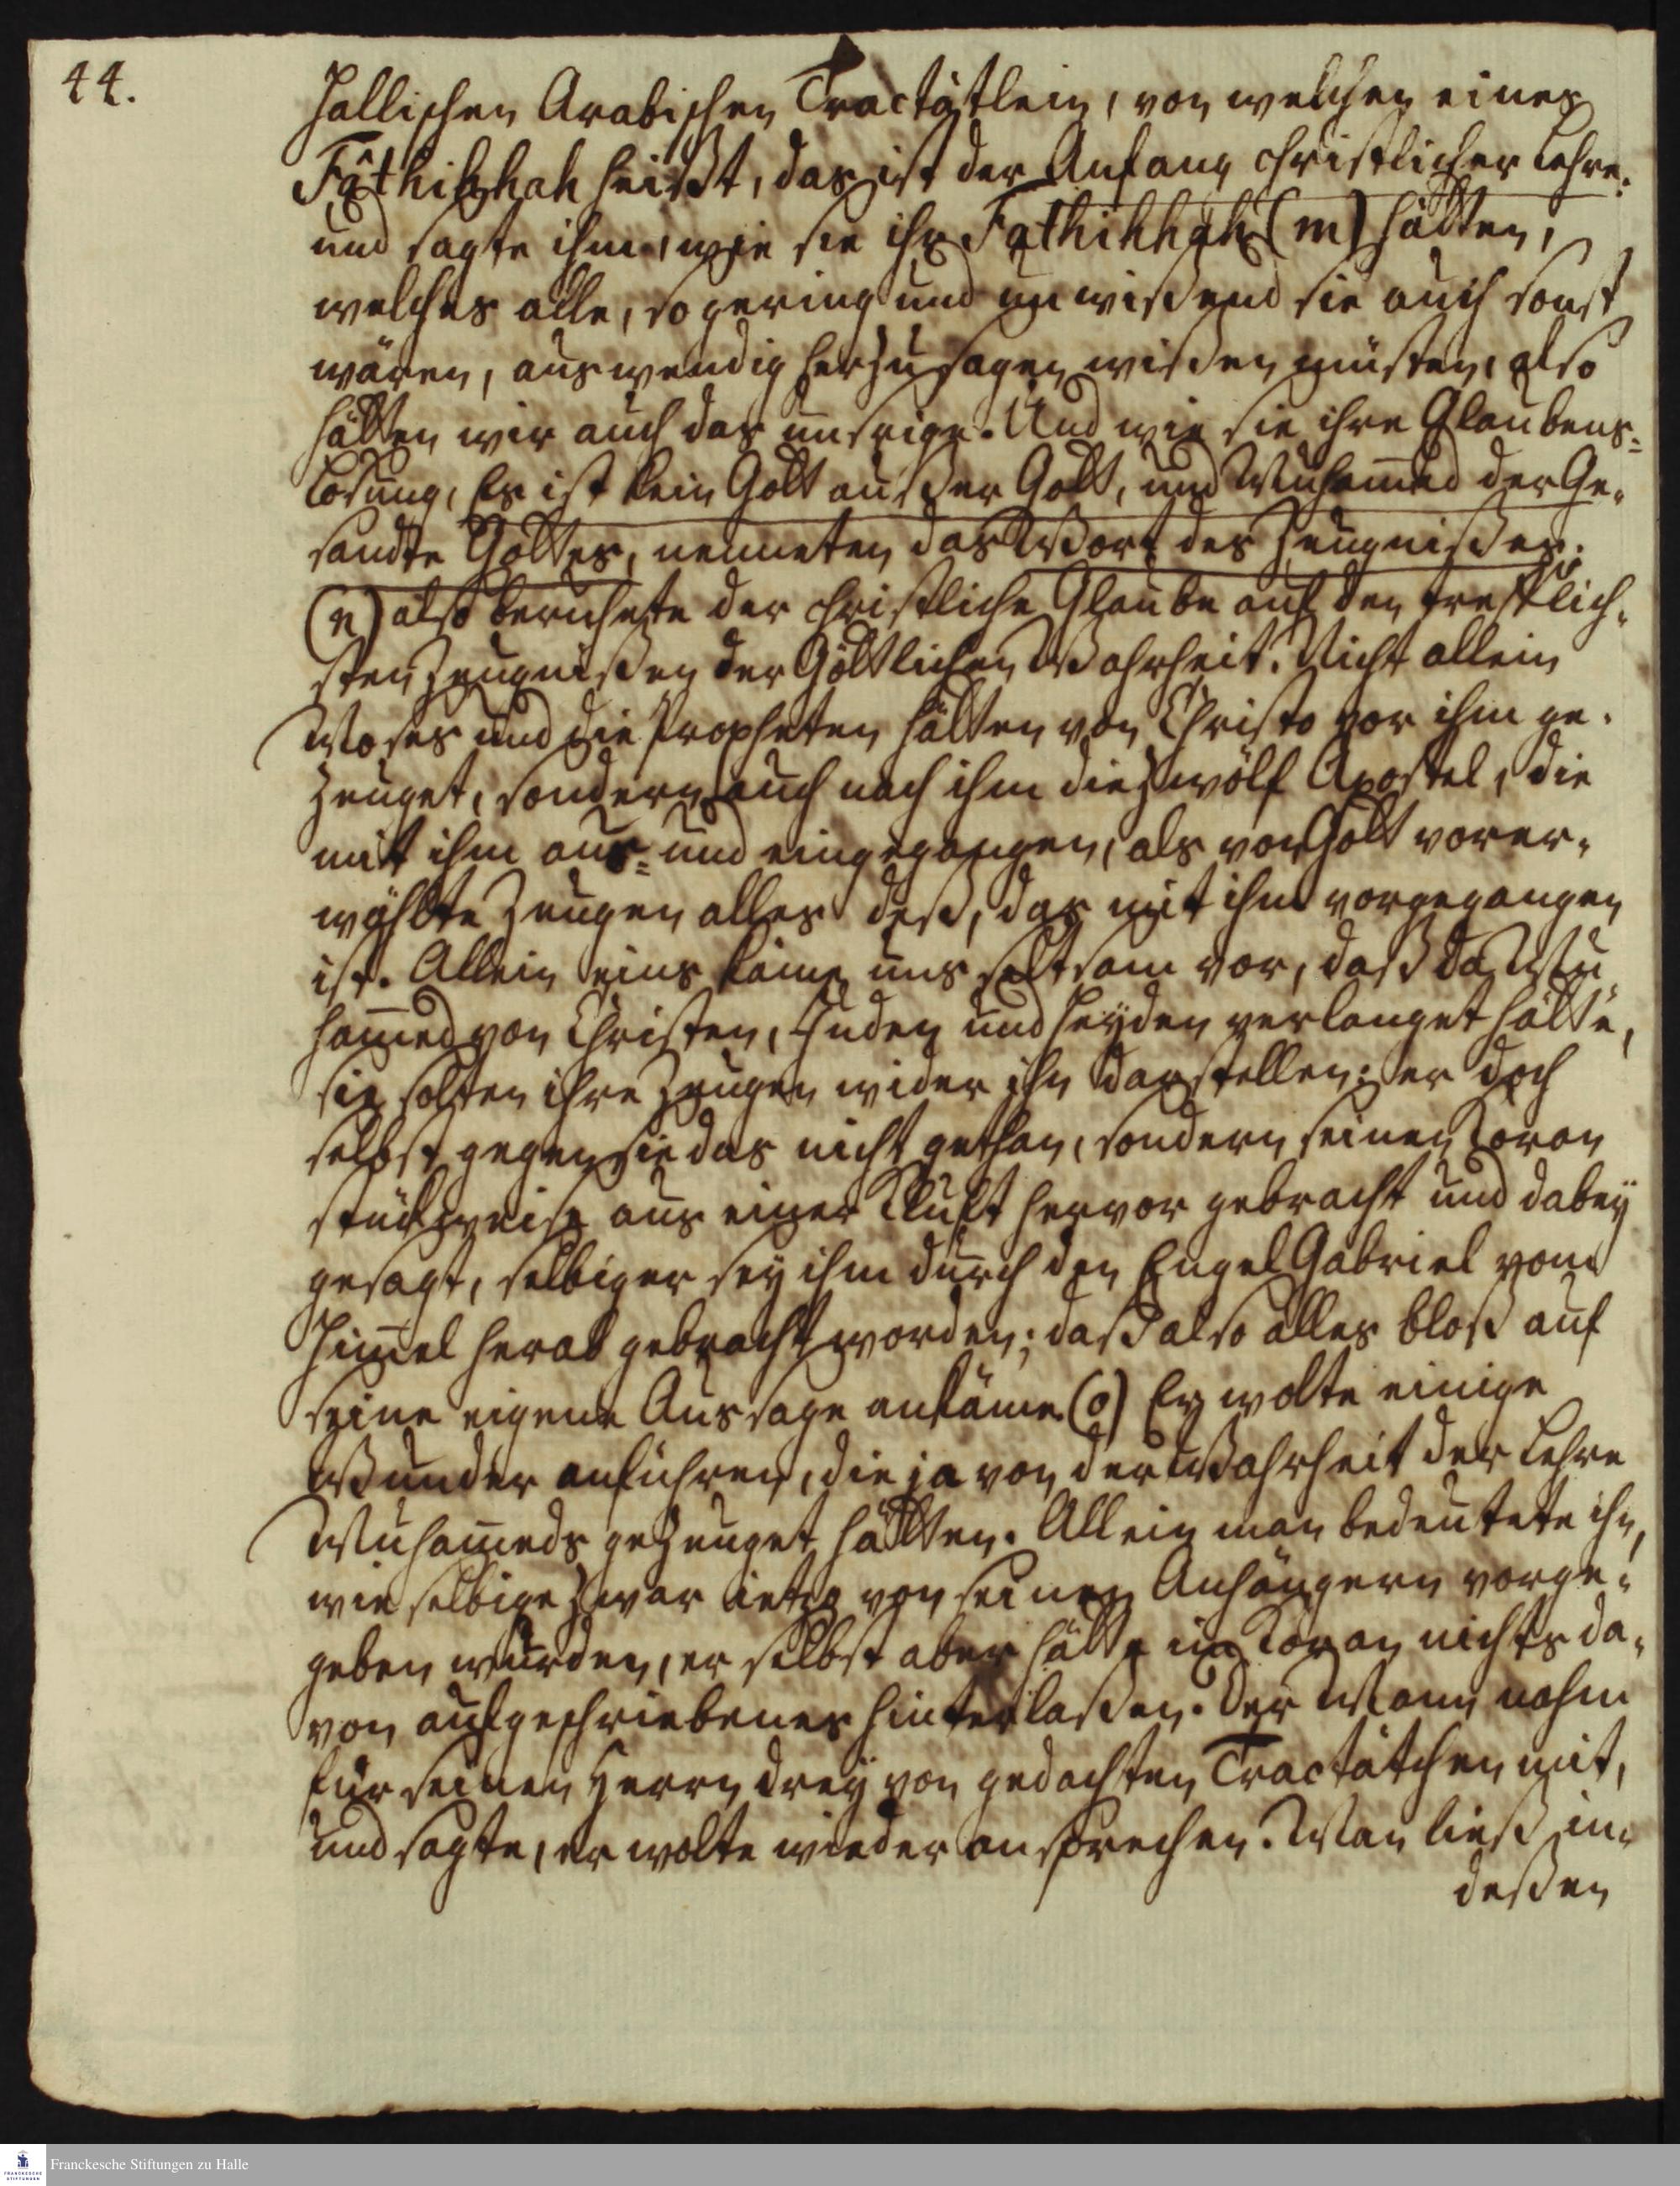 44.
Hallischen Arabischen Tractätlein, von welchen eines
Fâthihhah heißt, das ist der Anfang christlicher Lehre:
und sagte ihm, wie sie ihr Fathihhah (m) hätten,
welches alle, so gering und unwißend sie auch sonst
wären, auswendig herzusagen wißen müsten, also
hätten wir auch das unsrige. Und wie sie ihre Glaubens-
Losung, Es ist kein Gott außer Gott, und Muham̅ed der Ge-
sandte Gottes, nenneten das Wort des Zeugnißes:
(n) also beruhete der christliche Glaube auf den trefflich-
sten Zeugnißen der Göttlichen Wahrheit. Nicht allein
Moses und die Propheten hätten von Christo vor ihm ge-
zeuget, sondern auch nach ihm die zwölf Apostel, die
mit ihm aus- und eingegangen, als von Gott vorer-
wählte Zeugen alles deß, das mit ihm vorgegangen
ist. Allein eins käme uns seltsam vor, daß da Mu
ham̅ed von Christen, Juden und Heyden verlanget hätte,
sie solten ihre Zeugen wider ihn darstellen; er doch
selbst gegen sie das nicht gethan, sondern seinen Koran
stückweise aus einer Kluft hervor gebracht und dabey
gesagt, selbiger sey ihm durch den Engel Gabriel vom
Him̅el herab gebracht worden; daß also alles bloß auf
seine eigene Aussage ankäme. (o) Er wolte einige
Wunder anführen, die ja von der Wahrheit der Lehre
Muham̅eds gezeuget hätten. Allein man bedeutete ihn,
wie selbige zwar ietzo von seinen Anhängern vorge-
geben würden, er selbst aber hätte im Koran nichts da-
von aufgeschriebenes hinterlaßen. Der Mann nahm
für seinen Herrn drey von gedachten Tractätchen mit,
und sagte, er wolte wieder ansprechen. Man ließ in-
deßen
Franckesche Stiftungen zu Halle